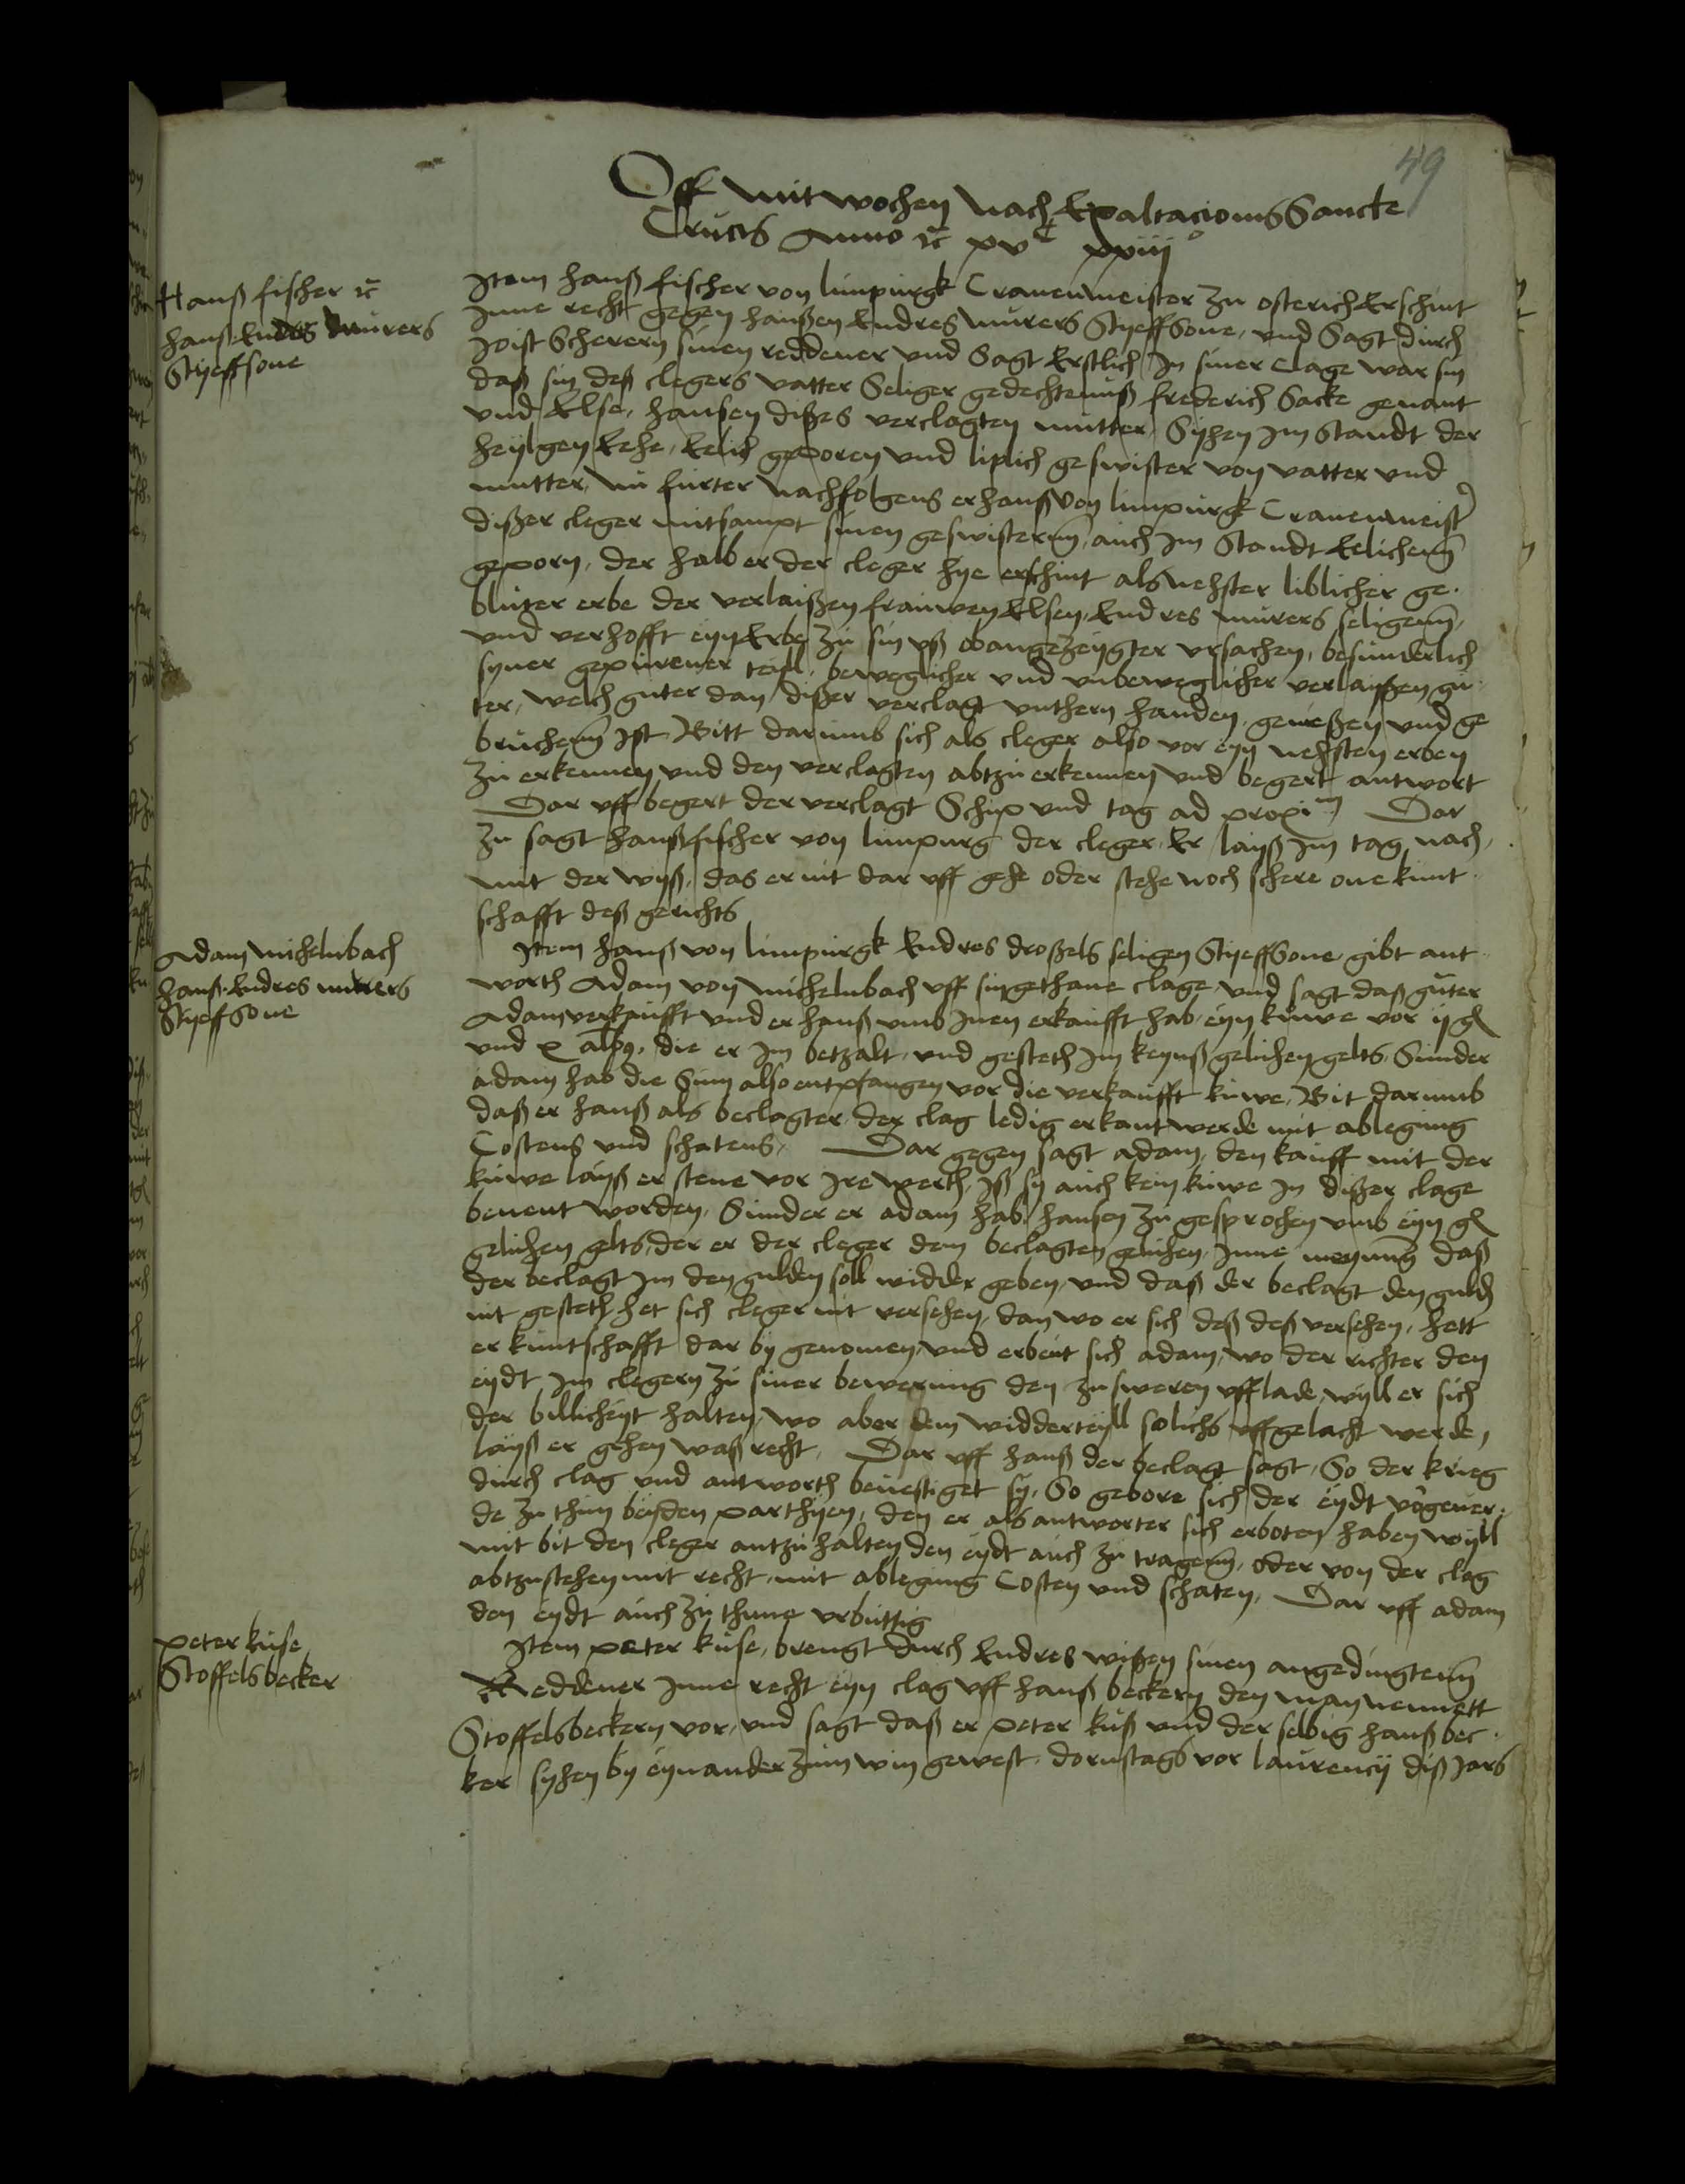 49
Off mitwochen nach Exaltacionis Sancte
Crucis Anno ꝛc xvᶜ xxiiiᵒ
Hanß fischer ꝛc
hanß Endres mürers
Stijeffsone
Item hanß fischer von limpurgk Cranenmeister zu osterich Erschint
Inne recht gegen hanßen Endres mürers Stijeffsone, und Sagt durch
Joist Scherern sinen reddener und Sagt Erstlich In siner Clage war sin
daß sin deß clegers vatter Seliger gedechteniß frederich Sack genant
und Else, hansen dißes verclagten mutter, Syhen Im Standt der
heylgen Eehe, Eelich geporen und liplich geswister von vatter und
mutter, nu furter nachfolgens er hanß von limpurgk Cranenmeister
dißer cleger mitsampt sinen geswistern auch Im Standt Eelichem
geporn, der halb er der cleger hye erschint als nehster liblicher ge
bluter erbe der verlaißen frauwen Elsen, Endres mürers seligen,
und verhofft eyn Erbe zu sin uß obangezeygter ursachen, besunderlich
syner gepurener teyll, beweglicher und unbeweglicher verlayßen gu
ter, welch guter dan dißer verclagt unthern handen, genießen und ge
bruchen Ist, Bitt darumb sich als cleger also vor eyn nehsten erben
zu erkennen und den verclagten abtzuerkennen und begert antwort
Dar uff begert der verclagt Schip und tag ad proxim Dar
zu sagt hanß fischer von limpurg der cleger, Er layß Im tag nach,
mit der wyß, das er nit dar uff gehe oder stehe noch schere one kunt
schafft deß gerichts
Adam Michelnbach
hanß Endres murers
Stijeffsone
Item hanß von limpurgk Endres droßels seligen Stijeffsone, gibt ant
worth Adam von Michelnbach uff sin gethane clage, und sagt daß guter
Adam verkaufft und er hanß umb Inen erkaufft hab, eyn kuwe vor ij gl
und x alb, die er Im betzalt, und gesteth Im keynß gelichen gelts, Sunder
adam hab die Sum also entpfangen vor die verkaufft kuwe, Bit darumb
daß er hanß als beclagter, der clag ledig erkant werde mit ablegung
Costens und schatens, Dar gegen sagt adam, den kauff mit der
kuwe layß er stene vor Ire werth, Iß sy auch kein kuwe In dißer clage
benent worden, Sunder er adam hab hansen zu gesprochen umb eyn gl
gelichen gelts, der er der cleger dem beclagten gelichen, Inne meynung daß
der beclagt Im den gulden soll widder geben, und daß der beclagt den gulden
nit gesteth, het sich cleger nit versehen, dan wo er sich deß deß versehen, hett
er kuntschafft dar by genomen, und erbeut sich adam, wo der richter den
eydt Im clegern zu siner bewerung den zu sweren uff lade, wyll er sich
der billicheyt halten, wo aber dem widderteyll solichs uffgelacht werde,
layß er gehen waß recht, Dar uff hanß der beclagt sagt, So der krieg
durch clag und antworth bevestiget sy, So gebore sich der eydt vor gever
de zu thun beyden parthyen, den er als antworter sich erboten haben wyll
mit bit den cleger antzuhalten den eydt auch zu tragen, oder von der clag
abtzustehen mit recht, mit ablegung Costen und schaten, Dar uff adam
den eydt auch zu thune urbuttig
Peter kuse
Stoffelsbecker
Item peter kuse, brengt durch Endres wißen sinen angedingten
Reddener Inne recht eyn clag uff hanß beckern den man nennett
Stoffelsbeckern vor, und sagt daß er peter kuß und der selbig hanß bec
ker syhen by eynander zum win gewest, dornstags vor laurencij diß Jars